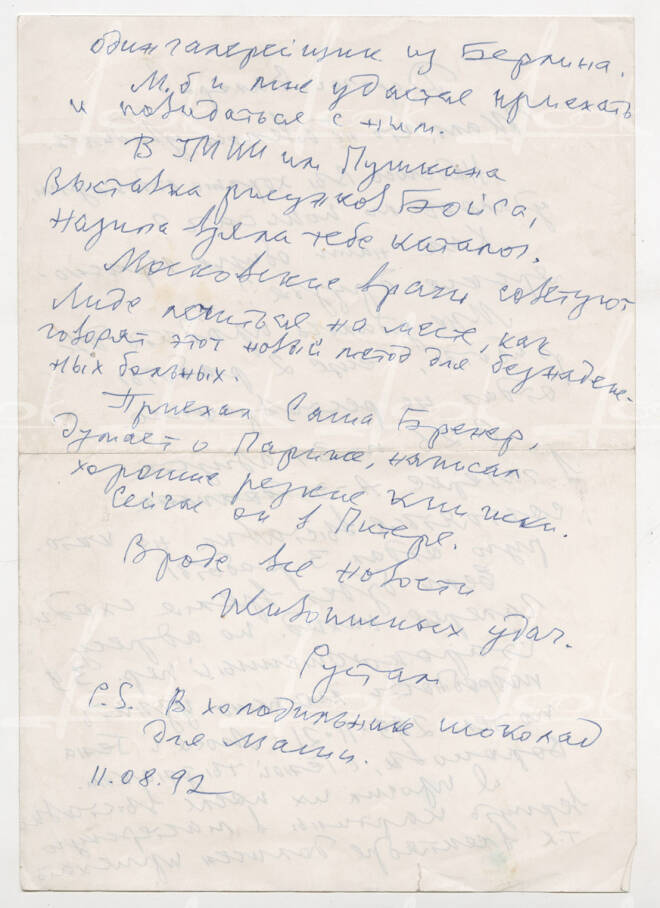 один галерейщик из Берлина.
М.б и мне удастся приехать
и повидаться с ним.
В ГМИИ им Пушкина
Выставка рисунков Бойса,
Назипа взяла тебе каталог.
Московские врачи советуют
Лиде лечиться на месте, как
говорят этот новый метод для безнадеж-
ных больных.
Приехал Саша Бренер,
думает о Париже, написал
хорошие резкие книжки.
Сейчас он в Питере.
Вроде все новости
Живописных удач.
Рустам
P.S. В холодильнике шоколад
для Маши.
11.08.92